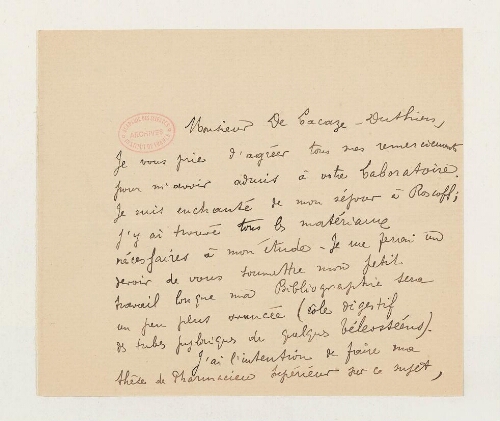 Monsieur De Lacaze-Duthiers,
ARCHIVES
Je vous prie d'agréer tous mes remerciements
pour m'avoir admis à votre Laboratoire.
Je suis enchanté de mon séjour à Roscoff;
j'y ai trouvé tous les matériaux
nécessaires à mon étude - Je me ferai un
devoir de vous soumettre mon petit
travail lorsque ma Bibliographie sera
un peu plus avancée (rôle digestif
des tubes pyloriques de quelques Téléostéens).
J'ai l'intention de faire ma
thèse de Pharmacien Supérieur sur ce sujet,